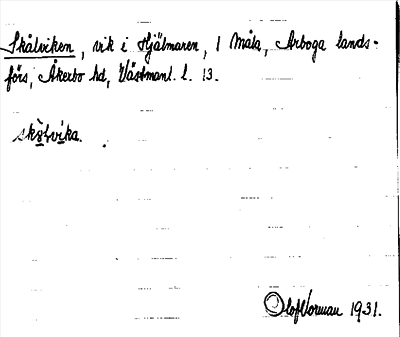 Skälviken, vik i Hjälmaren, 1 Måla, Arboga lands-
förs, Åkerbo hd, Västmanl. l. 13.
skälvika.
Olof Vorman 1931.